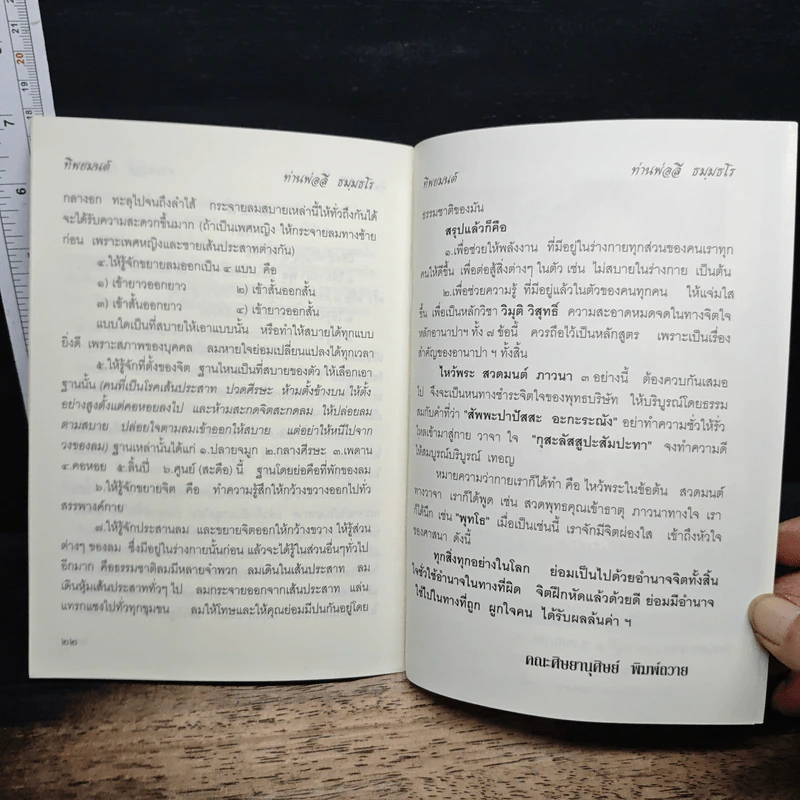 ทิพยมนต์ ท่านพ่อลี ธมฺมธโร
กลางอก ทะลุไปจนถึงลำไส้ กระจายลมสบายเหล่านี้ให้ทั่วถึงกันได้
จะได้รับความสะดวกขึ้นมาก (ถ้าเป็นเพศหญิง ให้กระจายลมทางซ้าย
ก่อน เพราะเพศหญิงและชายเส้นประสาทต่างกัน)
๔.ให้รู้จักขยายลมออกเป็น ๔ แบบ คือ
๑) เข้ายาวออกยาว ๒) เข้าสั้นออกสั้น
๓) เข้าสั้นออกยาว ๔) เข้ายาวออกสั้น
แบบใดเป็นที่สบายให้เอาแบบนั้น หรือทำให้สบายได้ทุกแบบ
ยิ่งดี เพราะสภาพของบุคคล ลมหายใจย่อมเปลี่ยนแปลงได้ทุกเวลา
๕.ให้รู้จักที่ตั้งของจิต ฐานไหนเป็นที่สบายของตัว ให้เลือกเอา
ฐานนั้น (คนที่เป็นโรคเส้นประสาท ปวดศีรษะ ห้ามตั้งข้างบน ให้ตั้ง
อย่างสูงตั้งแต่คอหอยลงไป และห้ามสะกดจิตสะกดลม ให้ปล่อยลม
ตามสบาย ปล่อยใจตามลมเข้าออกให้สบาย แต่อย่าให้หนีไปจาก
วงของลม) ฐานเหล่านั้นได้แก่ ๑.ปลายจมูก ๒.กลางศีรษะ ๓.เพดาน
๔.คอหอย ๕.ลิ้นปี่ ๖.ศูนย์ (สะดือ) นี้ ฐานโดยย่อคือที่พักของลม
๖.ให้รู้จักขยายจิต คือ ทำความรู้สึกให้กว้างขวางออกไปทั่ว
สรรพางค์กาย
๗.ให้รู้จักประสานลม และขยายจิตออกให้กว้างขวาง ให้รู้ส่วน
ต่างๆ ของลม ซึ่งมีอยู่ในร่างกายนั้นก่อน แล้วจะได้รู้ในส่วนอื่นๆทั่วไป
อีกมาก คือธรรมชาติลมมีหลายจำพวก ลมเดินในเส้นประสาท ลม
เดินหุ้มเส้นประสาททั่วๆ ไป ลมกระจายออกจากเส้นประสาท แล่น
แทรกแซงไปทั่วทุกขุมขน ลมให้โทษและให้คุณย่อมมีปนกันอยู่โดย
๒๒
ทิพยมนต์ ท่านพ่อลี ธมฺมธโร
ธรรมชาติของมัน
สรุปแล้วก็คือ
๑.เพื่อช่วยให้พลังงาน ที่มีอยู่ในร่างกายทุกส่วนของคนเราทุก
คนให้ดีขึ้น เพื่อต่อสู้สิ่งต่างๆ ในตัว เช่น ไม่สบายในร่างกาย เป็นต้น
๒.เพื่อช่วยความรู้ ที่มีอยู่แล้วในตัวของคนทุกคน ให้แจ่มใส
ขึ้น เพื่อเป็นหลักวิชา วิมุติ วิสุทธิ์ ความสะอาดหมดจดในทางจิตใจ
หลักอานาปาฯ ทั้ง ๗ ข้อนี้ ควรถือไว้เป็นหลักสูตร เพราะเป็นเรื่อง
สำคัญของอานาปา ฯ ทั้งสิ้น
ไหว้พระ สวดมนต์ ภาวนา ๓ อย่างนี้ ต้องควบกันเสมอ
ไป จึงจะเป็นหนทางชำระจิตใจของพุทธบริษัท ให้บริบูรณ์โดยธรรม
สมกับคำที่ว่า "สัพพะปาปัสสะ อะกะระณัง" อย่าทำความชั่วให้รั่ว
ไหลเข้ามาสู่กาย วาจา ใจ "กุสะลัสสูปะสัมปะทา" จงทำความดี
ให้สมบูรณ์บริบูรณ์ เทอญ
หมายความว่ากายเราก็ได้ทำ คือ ไหว้พระในข้อต้น สวดมนต์
ทางวาจา เราก็ได้พูด เช่น สวดพุทธคุณเข้าธาตุ ภาวนาทางใจ เรา
ก็ได้นึก เช่น "พุทโธ" เมื่อเป็นเช่นนี้ เราจักมีจิตผ่องใส เข้าถึงหัวใจ
ของศาสนา ดังนี้
ทุกสิ่งทุกอย่างในโลก ย่อมเป็นไปด้วยอำนาจจิตทั้งสิ้น
ใจชั่วใช้อำนาจในทางที่ผิด จิตฝึกหัดแล้วด้วยดี ย่อมมีอำนาจ
ใช้ไปในทางที่ถูก ผูกใจคน ได้รับผลล้นค่า ฯ
คณะศิษยานุศิษย์ พิมพ์ถวาย
7
6
21
20
19
18
17
16